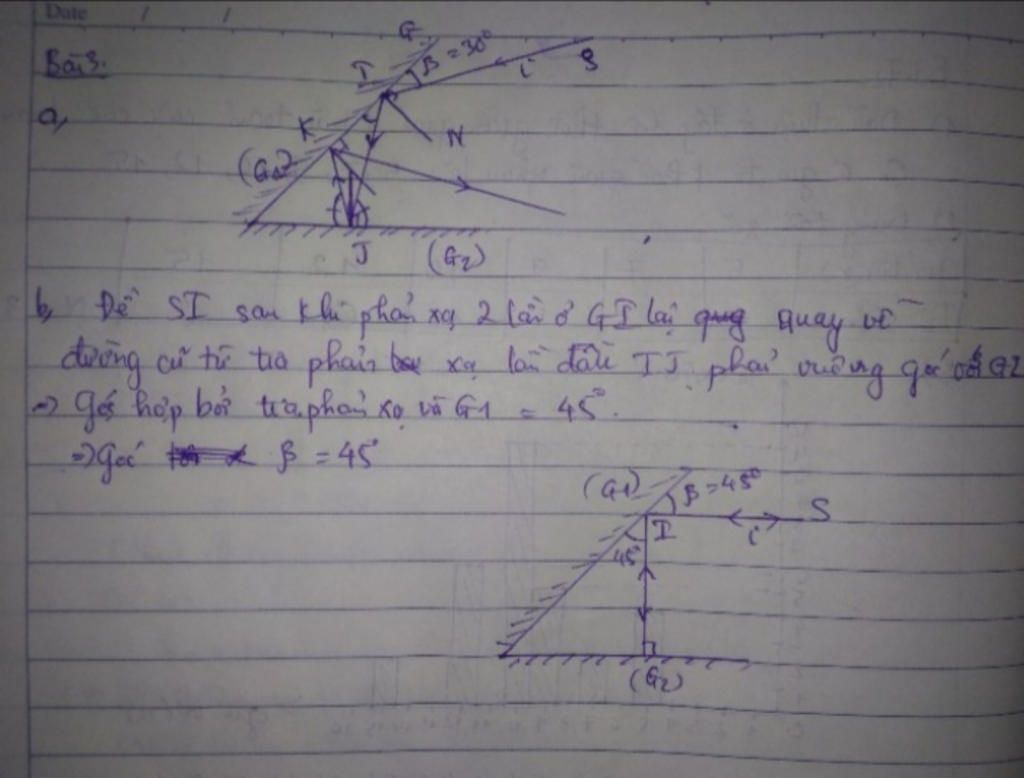 Date / /
Bài 3.
a,
G
I
β = 30°
i
S
K
N
(G1)
J
(G2)
b, Để SI sau khi phản xạ 2 lần ở GI lại quay về
đường cũ từ tia phản xạ lần đầu IJ phải vuông góc với G2
=> Góc hợp bởi tia phản xạ và G1 = 45°.
=> Góc β = 45°
(G1)
β = 45°
S
I
i
45°
(G2)